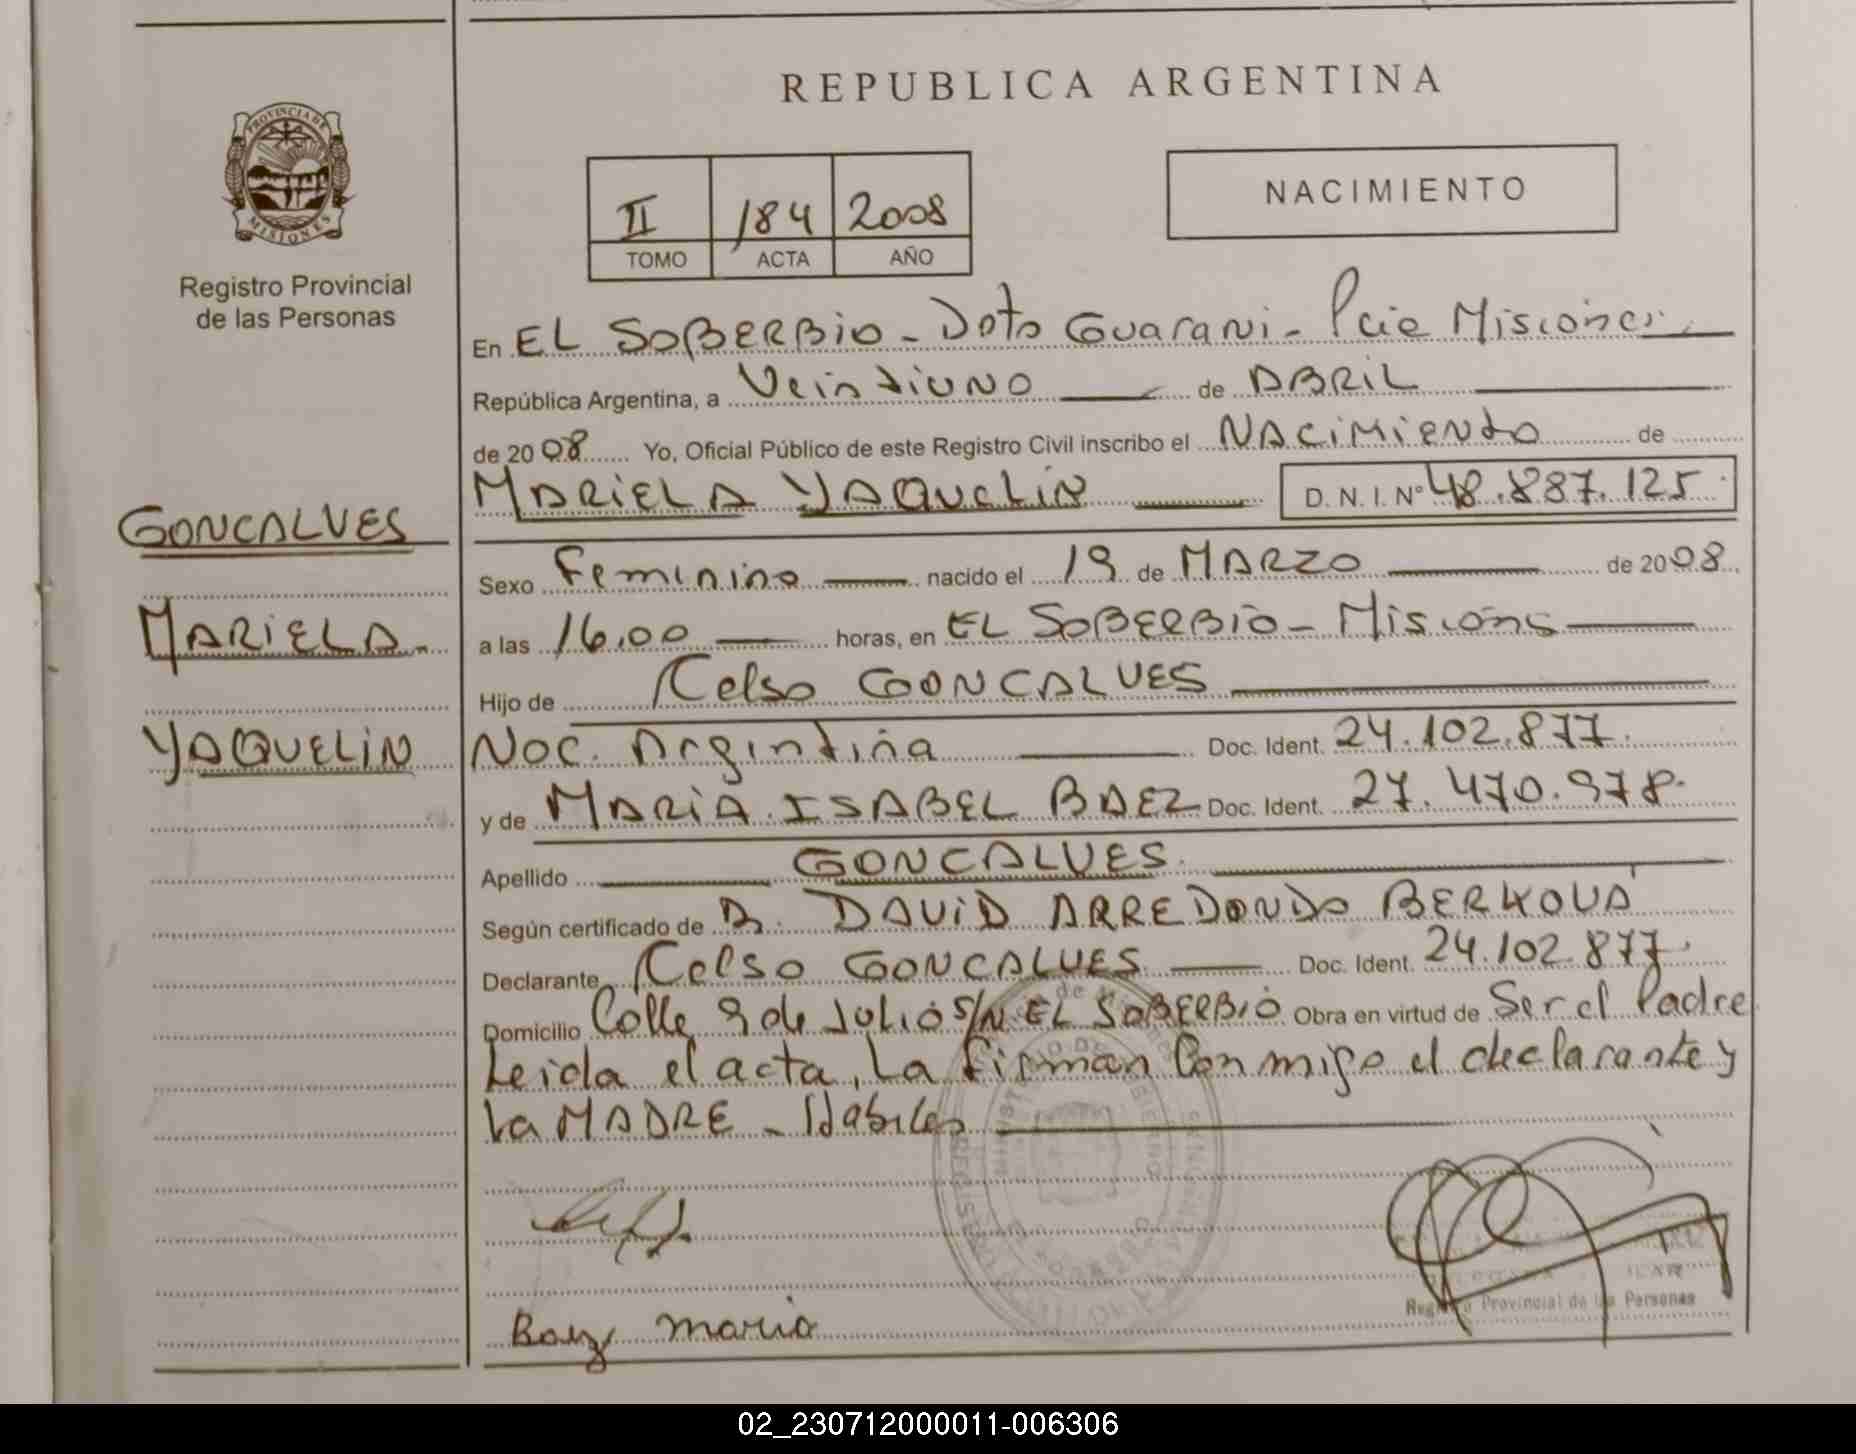 REPUBLICA ARGENTINA
PROVINCIA DE
MISIONES
Registro Provincial
de las Personas
NACIMIENTO
II 184 2008
TOMO ACTA AÑO
En EL SOBERBIO - Dpto Guarani - Pcia Misiones
República Argentina, a Veintiuno de ABRIL
de 2008 Yo, Oficial Público de este Registro Civil inscribo el NACIMIENTO de
MARIELA YAQUELIN D. N. I. Nº 48.887.125
GONCALVES
MARIELA
YAQUELIN
Sexo Femenino nacido el 19 de MARZO de 2008
a las 16,00 horas, en EL SOBERBIO - Misiones
Hijo de Celso GONCALVES
Nac. Argentina Doc. Ident. 24.102.877
y de MARIA ISABEL BAEZ Doc. Ident. 27.470.978
Apellido GONCALVES
Según certificado de Dr. DAVID ARREDONDO BERKOVA
Declarante Celso GONCALVES Doc. Ident. 24.102.877
Domicilio Calle 9 de Julio S/N EL SOBERBIO Obra en virtud de Ser el Padre
Leida el acta, La Firman Conmigo el declarante y
La MADRE - Habiles
Baez maria
Registro Provincial de las Personas
02_230712000011-006306